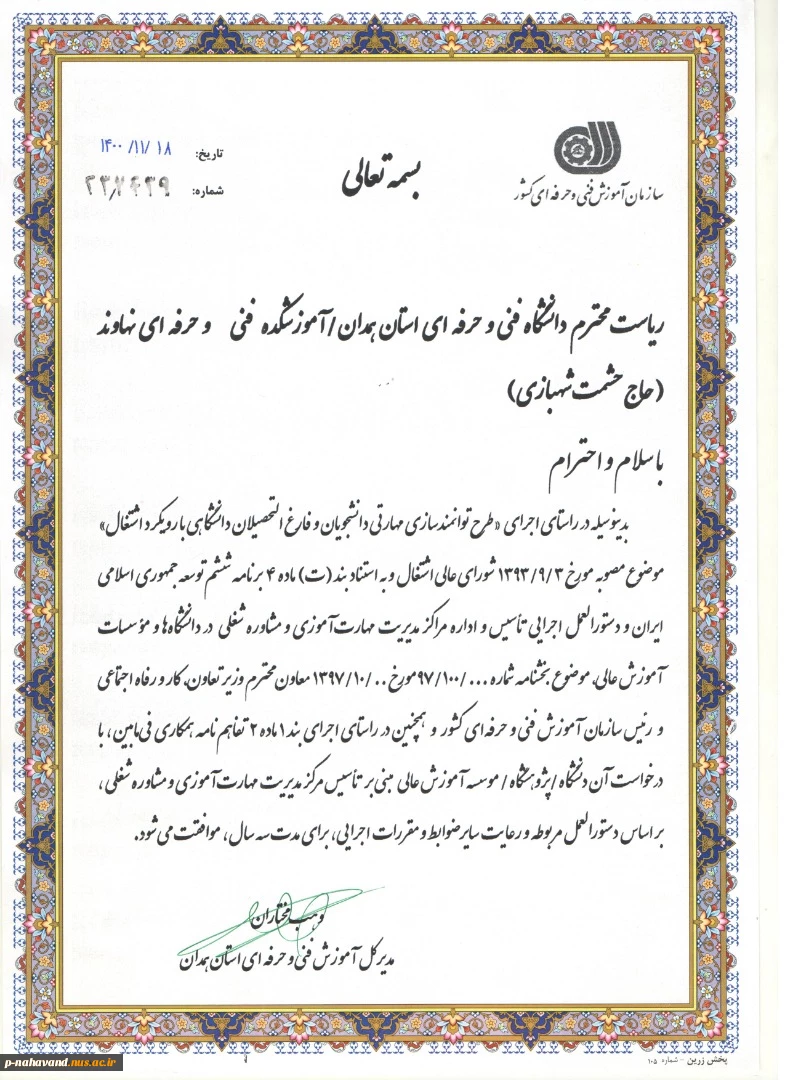 بسمه تعالی
سازمان آموزش فنی و حرفه ای کشور
تاریخ: ۱۴۰۰/۱۱/۱۸
شماره:
ریاست محترم دانشگاه فنی و حرفه ای استان همدان/آموزشکده فنی و حرفه ای نهاوند
(حاج حشمت شهبازی)
با سلام و احترام
بدینوسیله در راستای اجرای «طرح توانمندسازی مهارتی دانشجویان و فارغ التحصیلان دانشگاهی با رویکرد اشتغال»
موضوع مصوبه مورخ ۱۳۹۳/۹/۳ شورای عالی اشتغال و به استناد بند (ت) ماده ۴ برنامه ششم توسعه جمهوری اسلامی
ایران و دستورالعمل اجرایی تأسیس و اداره مراکز مدیریت مهارت آموزی و مشاوره شغلی در دانشگاه‌ها و مؤسسات
آموزش عالی، موضوع بخشنامه شماره ... /۹۷/۱۰۰مورخ .. /۱۳۹۷/۱۰ معاون محترم وزیر تعاون، کار و رفاه اجتماعی
و رئیس سازمان آموزش فنی و حرفه‌ای کشور و همچنین در راستای اجرای بند ۱ ماده ۲ تفاهم نامه همکاری فی‌مابین، با
درخواست آن دانشگاه / پژوهشگاه / موسسه آموزش عالی مبنی بر تأسیس مرکز مدیریت مهارت آموزی و مشاوره شغلی،
بر اساس دستورالعمل مربوطه و رعایت سایر ضوابط و مقررات اجرایی، برای مدت سه سال، موافقت می‌شود.
وهب مختاران
مدیر کل آموزش فنی و حرفه ای استان همدان
پخش زرین - شماره ۱۰۵
p-nahavand.nus.ac.ir